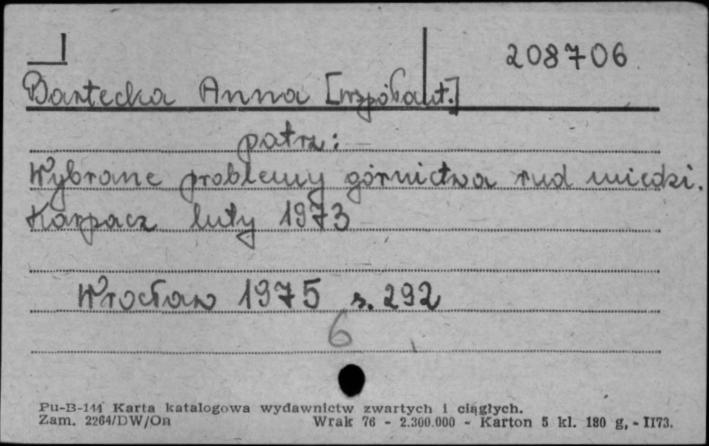 208706
Bartecka Anna [współaut.]
patrz:
Wybrane problemy górnictwa rud miedzi.
Karpacz luty 1973
Wrocław 1975 s. 292
6
Pu-B-144 Karta katalogowa wydawnictw zwartych i ciągłych.
Zam. 2264/DW/On Wrak 76 - 2.300.000 - Karton 5 kl. 180 g, - II73.